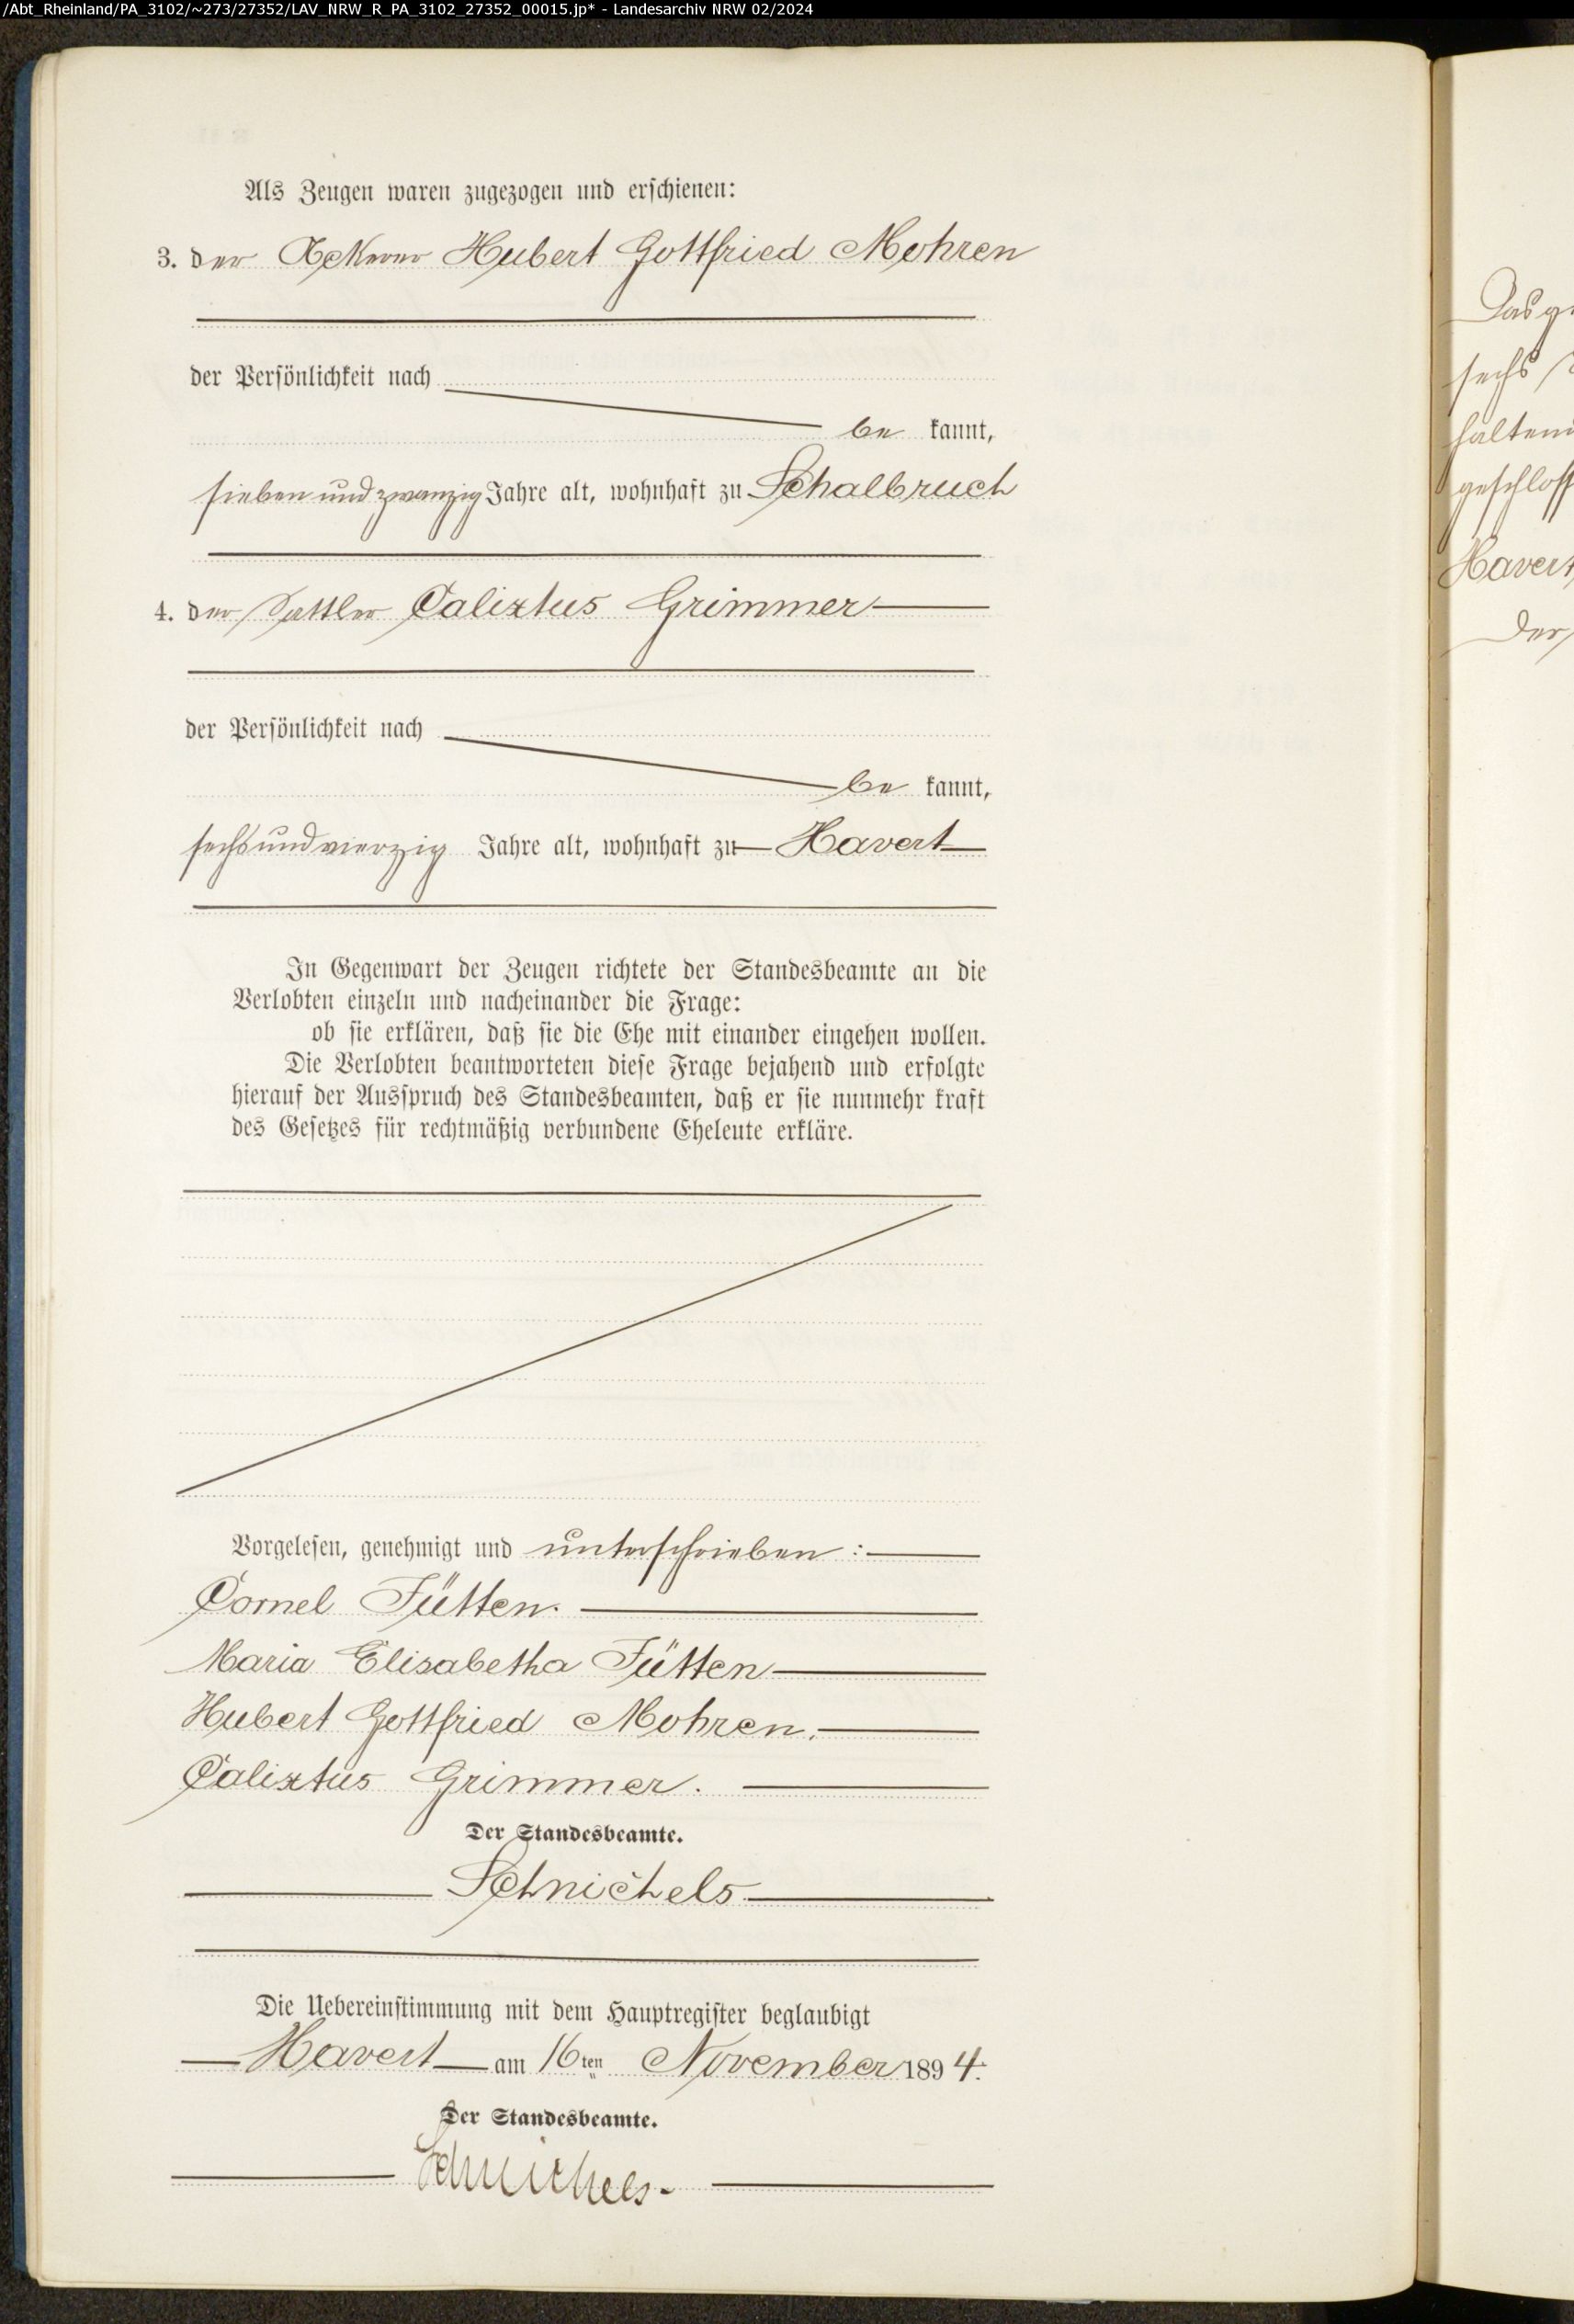 /Abt_Rheinland/PA_3102/~273/27352/LAV_NRW_R_PA_3102_27352_00015.jp* - Landesarchiv NRW 02/2024
Als Zeugen waren zugezogen und erschienen:
3. der Ackerer Hubert Gottfried Mohren
der Persönlichkeit nach
be kannt,
sieben und zwanzig Jahre alt, wohnhaft zu Schalbruch
4. der Sattler Calixtus Grimmer
der Persönlichkeit nach
be kannt,
sechsundvierzig Jahre alt, wohnhaft zu Havert
In Gegenwart der Zeugen richtete der Standesbeamte an die
Verlobten einzeln und nacheinander die Frage:
ob sie erklären, daß sie die Ehe mit einander eingehen wollen.
Die Verlobten beantworteten diese Frage bejahend und erfolgte
hierauf der Ausspruch des Standesbeamten, daß er sie nunmehr kraft
des Gesetzes für rechtmäßig verbundene Eheleute erkläre.
Vorgelesen, genehmigt und unterschrieben:
Cornel Jütten.
Maria Elisabetha Jütten
Hubert Gottfried Mohren.
Calixtus Grimmer.
Der Standesbeamte.
Schnichels
Die Uebereinstimmung mit dem Hauptregister beglaubigt
Havert am 16ten November 1894.
Der Standesbeamte.
Schnichels.
sechs
geschloss
Havert
Der